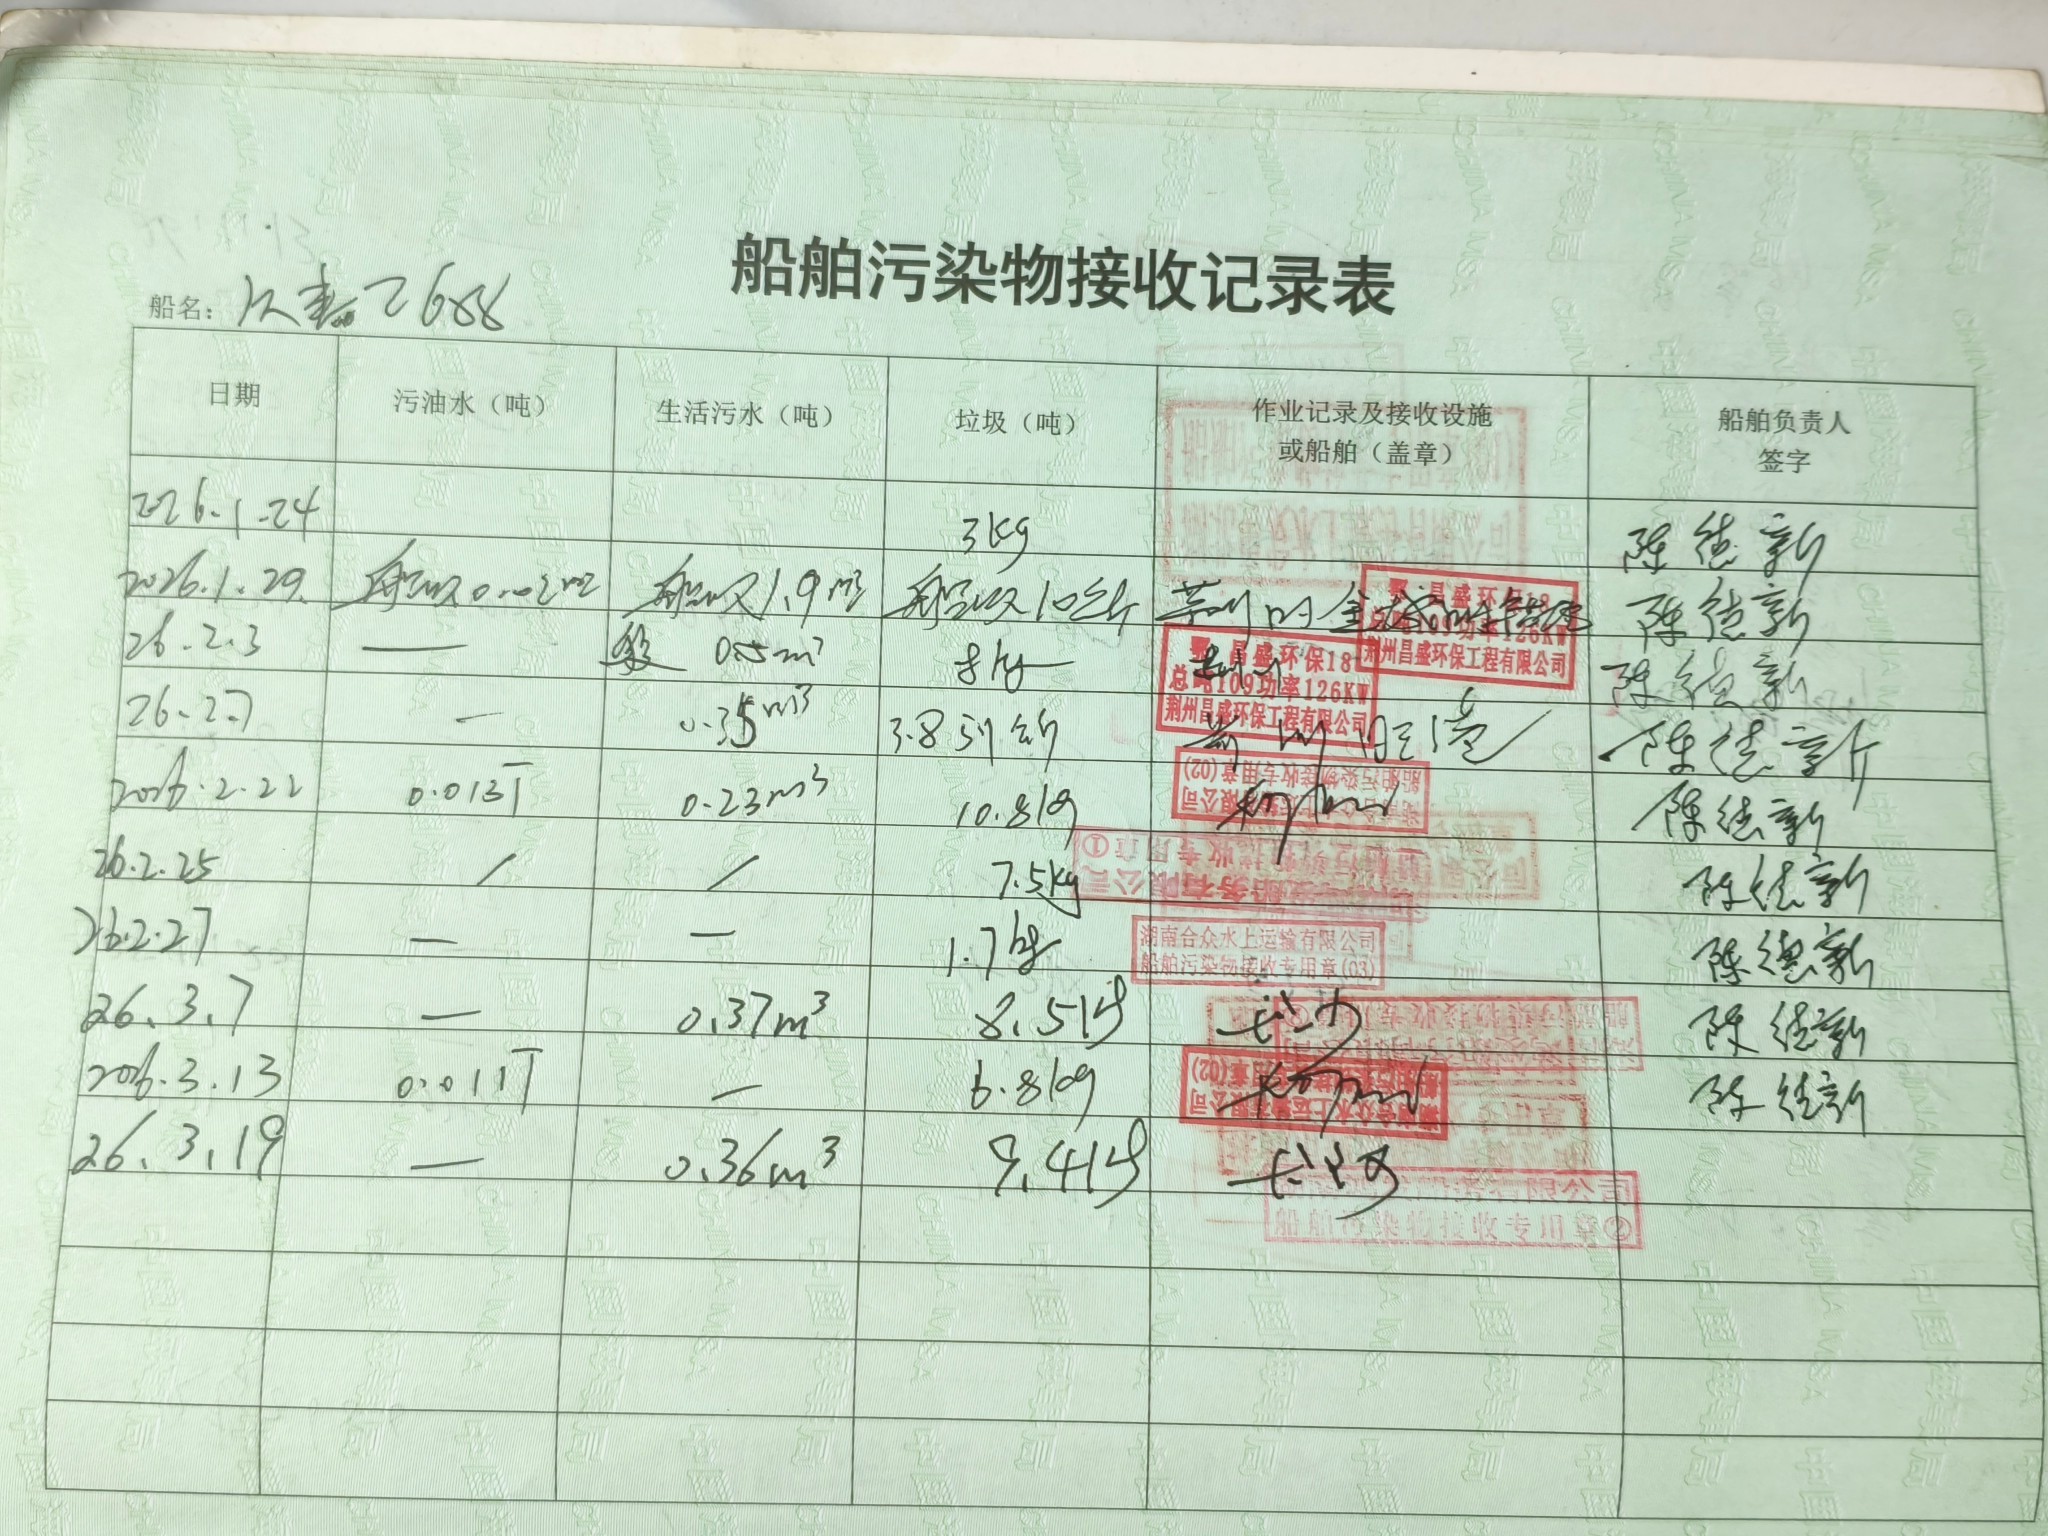 船舶污染物接收记录表
船名: 2688
日期 污油水（吨） 生活污水（吨） 垃圾（吨） 作业记录及接收设施或船舶（盖章） 船舶负责人签字
2026.1.24 3kg 陈德新
2026.1.29. 船收0.02m³ 船收1.9m³ 船收10公斤 荆州 陈德新
26.2.3 — 0.5m³ 8kg 陈德新
26.2.7 — 0.35m³ 3.8公斤 荆州 港 陈德新
2026.2.22 0.013T 0.23m³ 10.8kg 陈德新
26.2.25 / / 7.5kg 陈德新
26.2.27 — — 1.7kg 陈德新
26.3.7 — 0.37m³ 8.5kg 长沙 陈德新
2026.3.13 0.011T — 6.8kg 陈德新
26.3.19 — 0.36m³ 9.4kg 长沙
昌盛环保18
8109功率126KW
荆州昌盛环保工程有限公司
鄂 昌盛环保18
总 8109功率126KW
荆州昌盛环保工程有限公司
船舶污染物接收专用章(02)
湖南合众水上运输有限公司
船舶污染物接收专用章(03)
湖南合众水上运输有限公司
船舶污染物接收专用章②